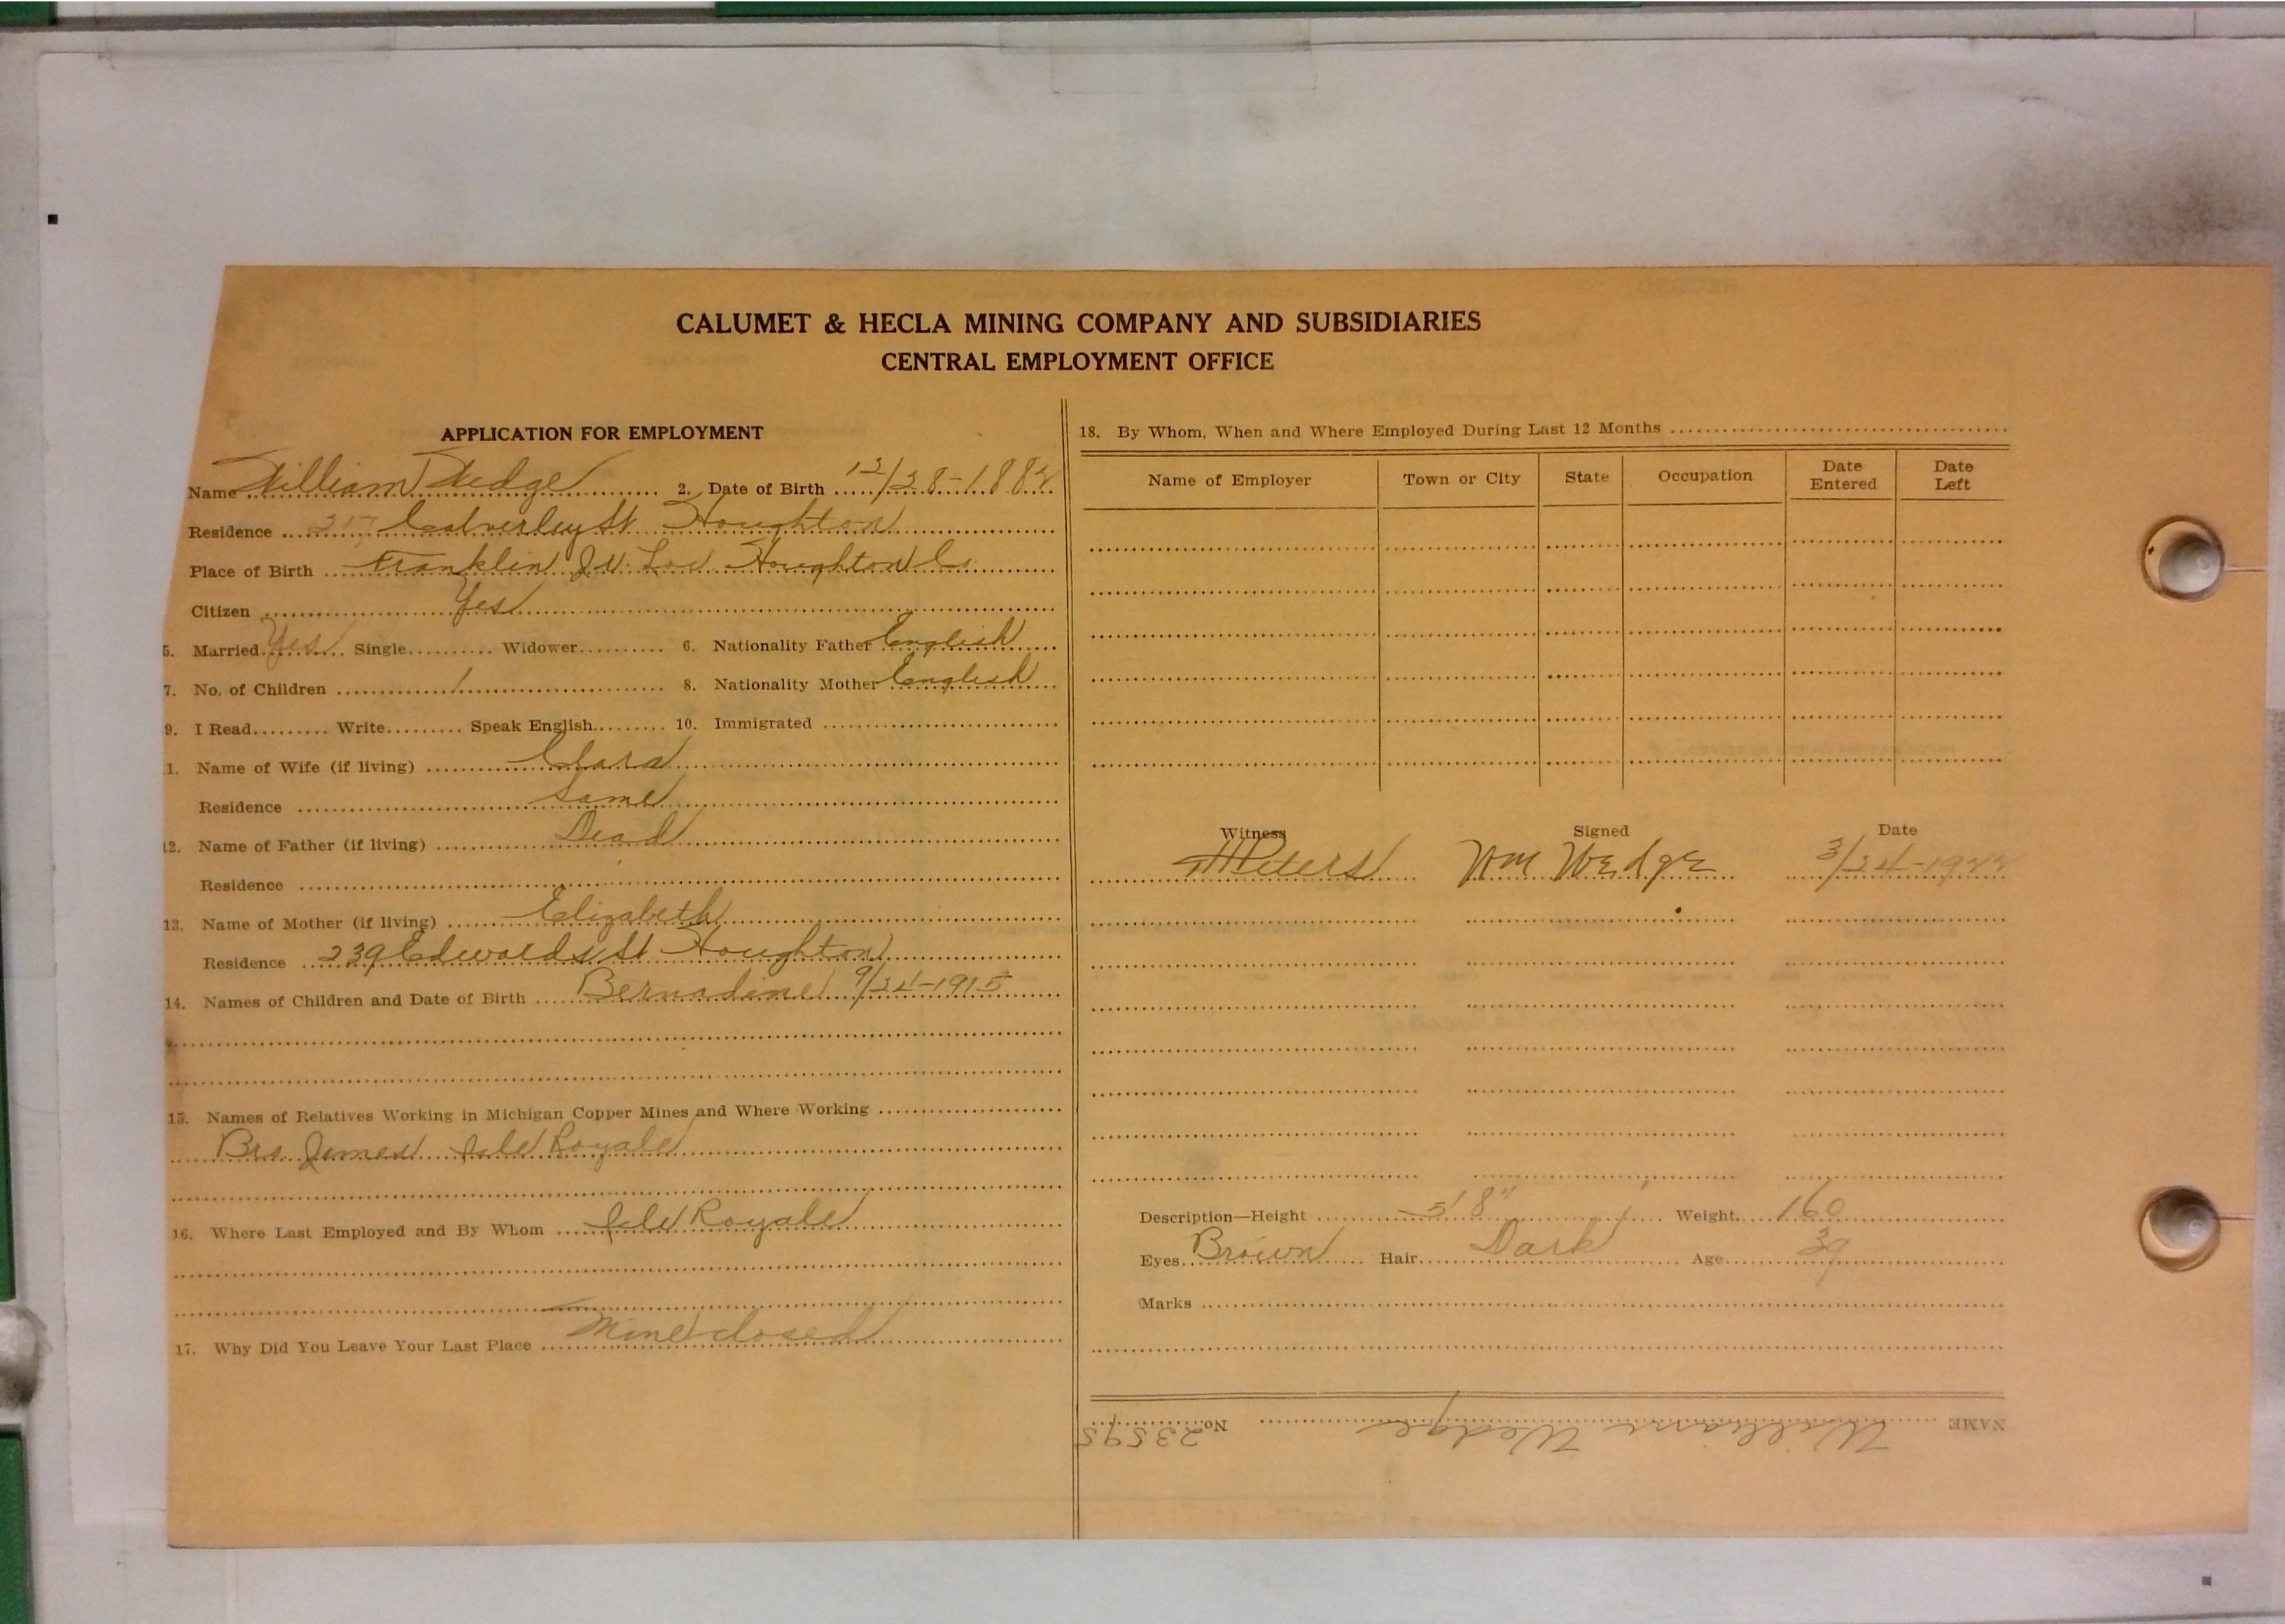 CALUMET & HECLA MINING COMPANY AND SUBSIDIARIES
CENTRAL EMPLOYMENT OFFICE
APPLICATION FOR EMPLOYMENT
Name William Wedge 2. Date of Birth 12/28-1882
Residence 217 Calverley St. Houghton
Place of Birth Franklin Jr. Loc. Houghton Co
Citizen Yes
5. Married Yes Single Widower 6. Nationality Father English
7. No. of Children 1 8. Nationality Mother English
9. I Read Write Speak English 10. Immigrated
1. Name of Wife (if living) Clara
Residence Same
12. Name of Father (if living) Dead
Residence
13. Name of Mother (if living) Elizabeth
Residence 239 Edwards St Houghton
14. Names of Children and Date of Birth Bernadine 9/24-1915
15. Names of Relatives Working in Michigan Copper Mines and Where Working
Bro. James Isle Royale
16. Where Last Employed and By Whom Isle Royale
17. Why Did You Leave Your Last Place Mine closed
18. By Whom, When and Where Employed During Last 12 Months
Name of Employer Town or City State Occupation Date Entered Date Left
Witness Signed Date
Peters Wm Wedge 3/24-1922
Description—Height 5' 8" Weight 160
Eyes Brown Hair Dark Age 39
Marks
NAME William Wedge No. 23595